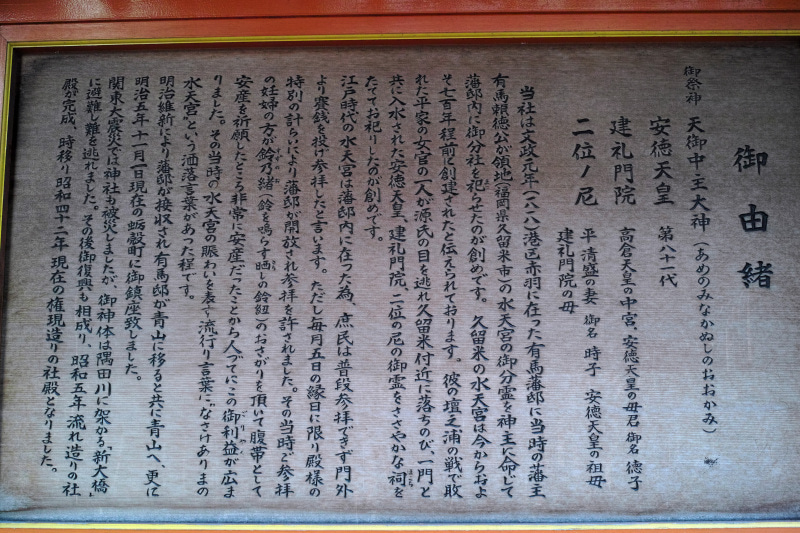 御由緒
御祭神 天御中主大神（あめのみなかぬしのおおかみ）
安徳天皇 第八十一代
建礼門院 高倉天皇の中宮、安徳天皇の母君 御名 徳子
二位ノ尼 平 清盛の妻 御名 時子 安徳天皇の祖母
建礼門院の母
当社は文政元年（一八一八）港区赤羽に在った有馬藩邸に当時の藩主
有馬頼徳公が領地（福岡県久留米市）の水天宮の御分霊を神主に命じて
藩邸内に御分社を祀らせたのが創めです。久留米の水天宮は今からおよ
そ七百年程前に創建されたと伝えられております。彼の壇之浦の戦で敗
れた平家の女官の一人が源氏の目を逃れ久留米付近に落ちのび、一門と
共に入水された安徳天皇、建礼門院、二位の尼の御霊をささやかな祠を
たててお祀りしたのが創めです。
江戸時代の水天宮は藩邸内に在った為、庶民は普段参拝できず門外
より賽銭を投げ参拝したと言います。ただし毎月五日の縁日に限り殿様の
特別の計らいにより藩邸が開放され参拝を許されました。その当時ご参拝
の妊婦の方が鈴乃緒（鈴を鳴らす晒しの鈴紐）のおさがりを頂いて腹帯として
安産を祈願したところ非常に安産だったことから人づてにこの御利益が広ま
りました。その当時の水天宮の賑わいを表す流行り言葉に“なさけありまの
水天宮”という洒落言葉があった程です。
明治維新により藩邸が接収され有馬邸が青山に移ると共に青山へ、更に
明治五年十一月一日現在の蛎殻町に御鎮座致しました。
関東大震災では神社も被災しましたが、御神体は隅田川に架かる「新大橋」
に避難し難を逃れました。その後御復興も相成り、昭和五年流れ造りの社
殿が完成、時移り昭和四十二年現在の権現造りの社殿となりました。